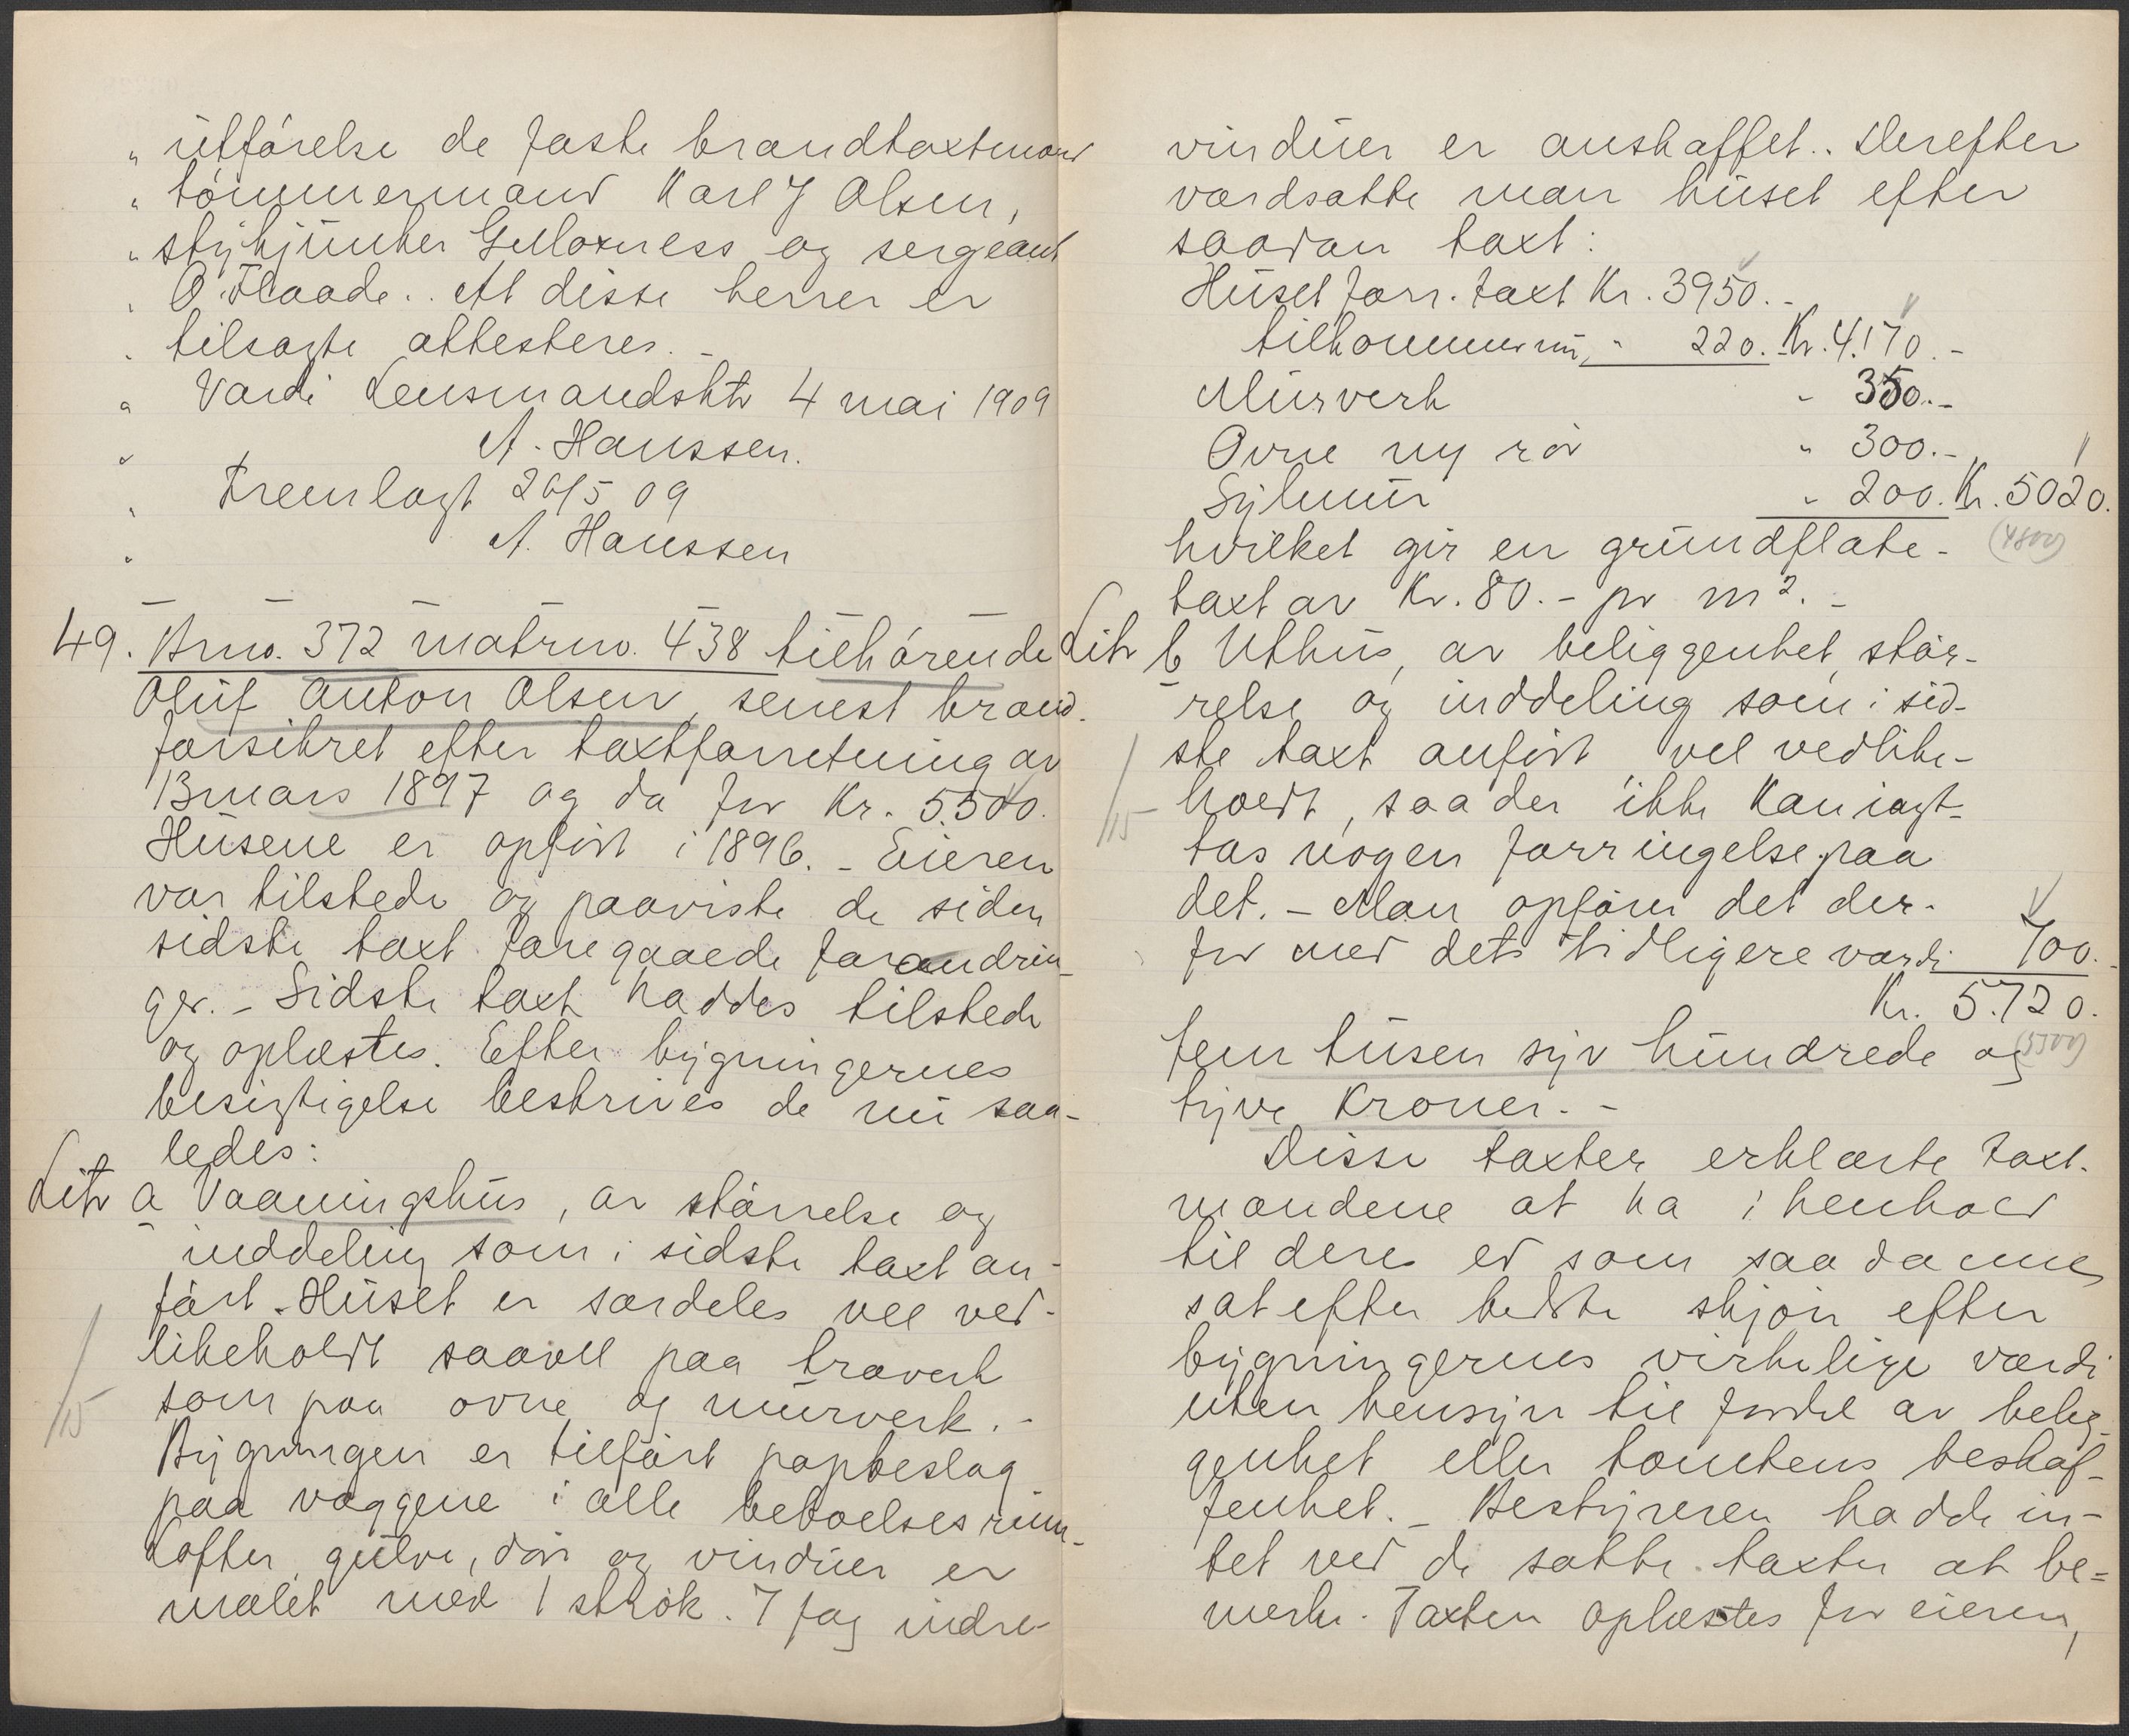 " utførelse de faste brandtaxtmænd
" tømmermand Karl J Olsen,
" stykjunker Gulloxness og sergeant
" O. Flaade.. At disse herrer er
" tilsagte attesteres. -
" Vardø Lensmandsktr 4 mai 1909
" A. Hanssen.
" Fremlagt 26/5 09
" A. Hanssen
49. Brno. 372 matrno. 438 tilhørende
Oluf Anton Olsen, senest brand-
forsikret efter taxtforretning av
13 mars 1897 og da for Kr. 5.500.
Husene er opført i 1896. - Eieren
var tilstede og paaviste de siden
sidste taxt foregaaede forandrin-
ger. - Sidste taxt haddes tilstede
og oplæstes. Efter bygningernes
besigtigelse beskrives de nu saa-
ledes:
Litr a Vaaningshus, av størrelse og
inddeling som i sidste taxt an-
ført. Huset er særdeles vel ved-
likeholdt saavel paa træverk
/15 som paa ovne og murverk. -
Bygningen er tilført papbeslag
paa væggene i alle beboelsesrum-
Lofter, gulve, dør og vinduer er
malet med 1 strøk. 7 fag indre-
vinduer er anskaffet.. Derefter
værdsatte man huset efter
saadan taxt:
Huset forr. taxt Kr. 3950. -
tilkommer nu " 220. - Kr. 4.170. -
Murverk " 350. -
Ovne ny rør " 300. -
Sylmur " 200. Kr. 5020.
hvilket gir en grundflate- (4800)
taxt av Kr. 80. - pr m². -
Litr b Uthus, av beliggenhet, stør-
relse og inddeling som i sid-
ste taxt anført vel vedlike-
/15 holdt, saa der ikke kan iagt-
tas nogen forringelse paa
det. - Man opfører det der-
for med dets tidligere værdi 700. -
Kr. 5.720.
fem tusen syv hundrede og (5500)
tyve Kroner. -
Disse taxter erklærte taxt-
mændene at ha i henhold
til deres ed som saadanne
sat efter bedste skjøn efter
bygningernes virkelige værdi
uten hensyn til fordel av belig-
genhet eller tomtens beskaf-
fenhet. - Bestyreren hadde in-
tet ved de satte taxter at be-
merke. Taxten oplæstes for eieren,